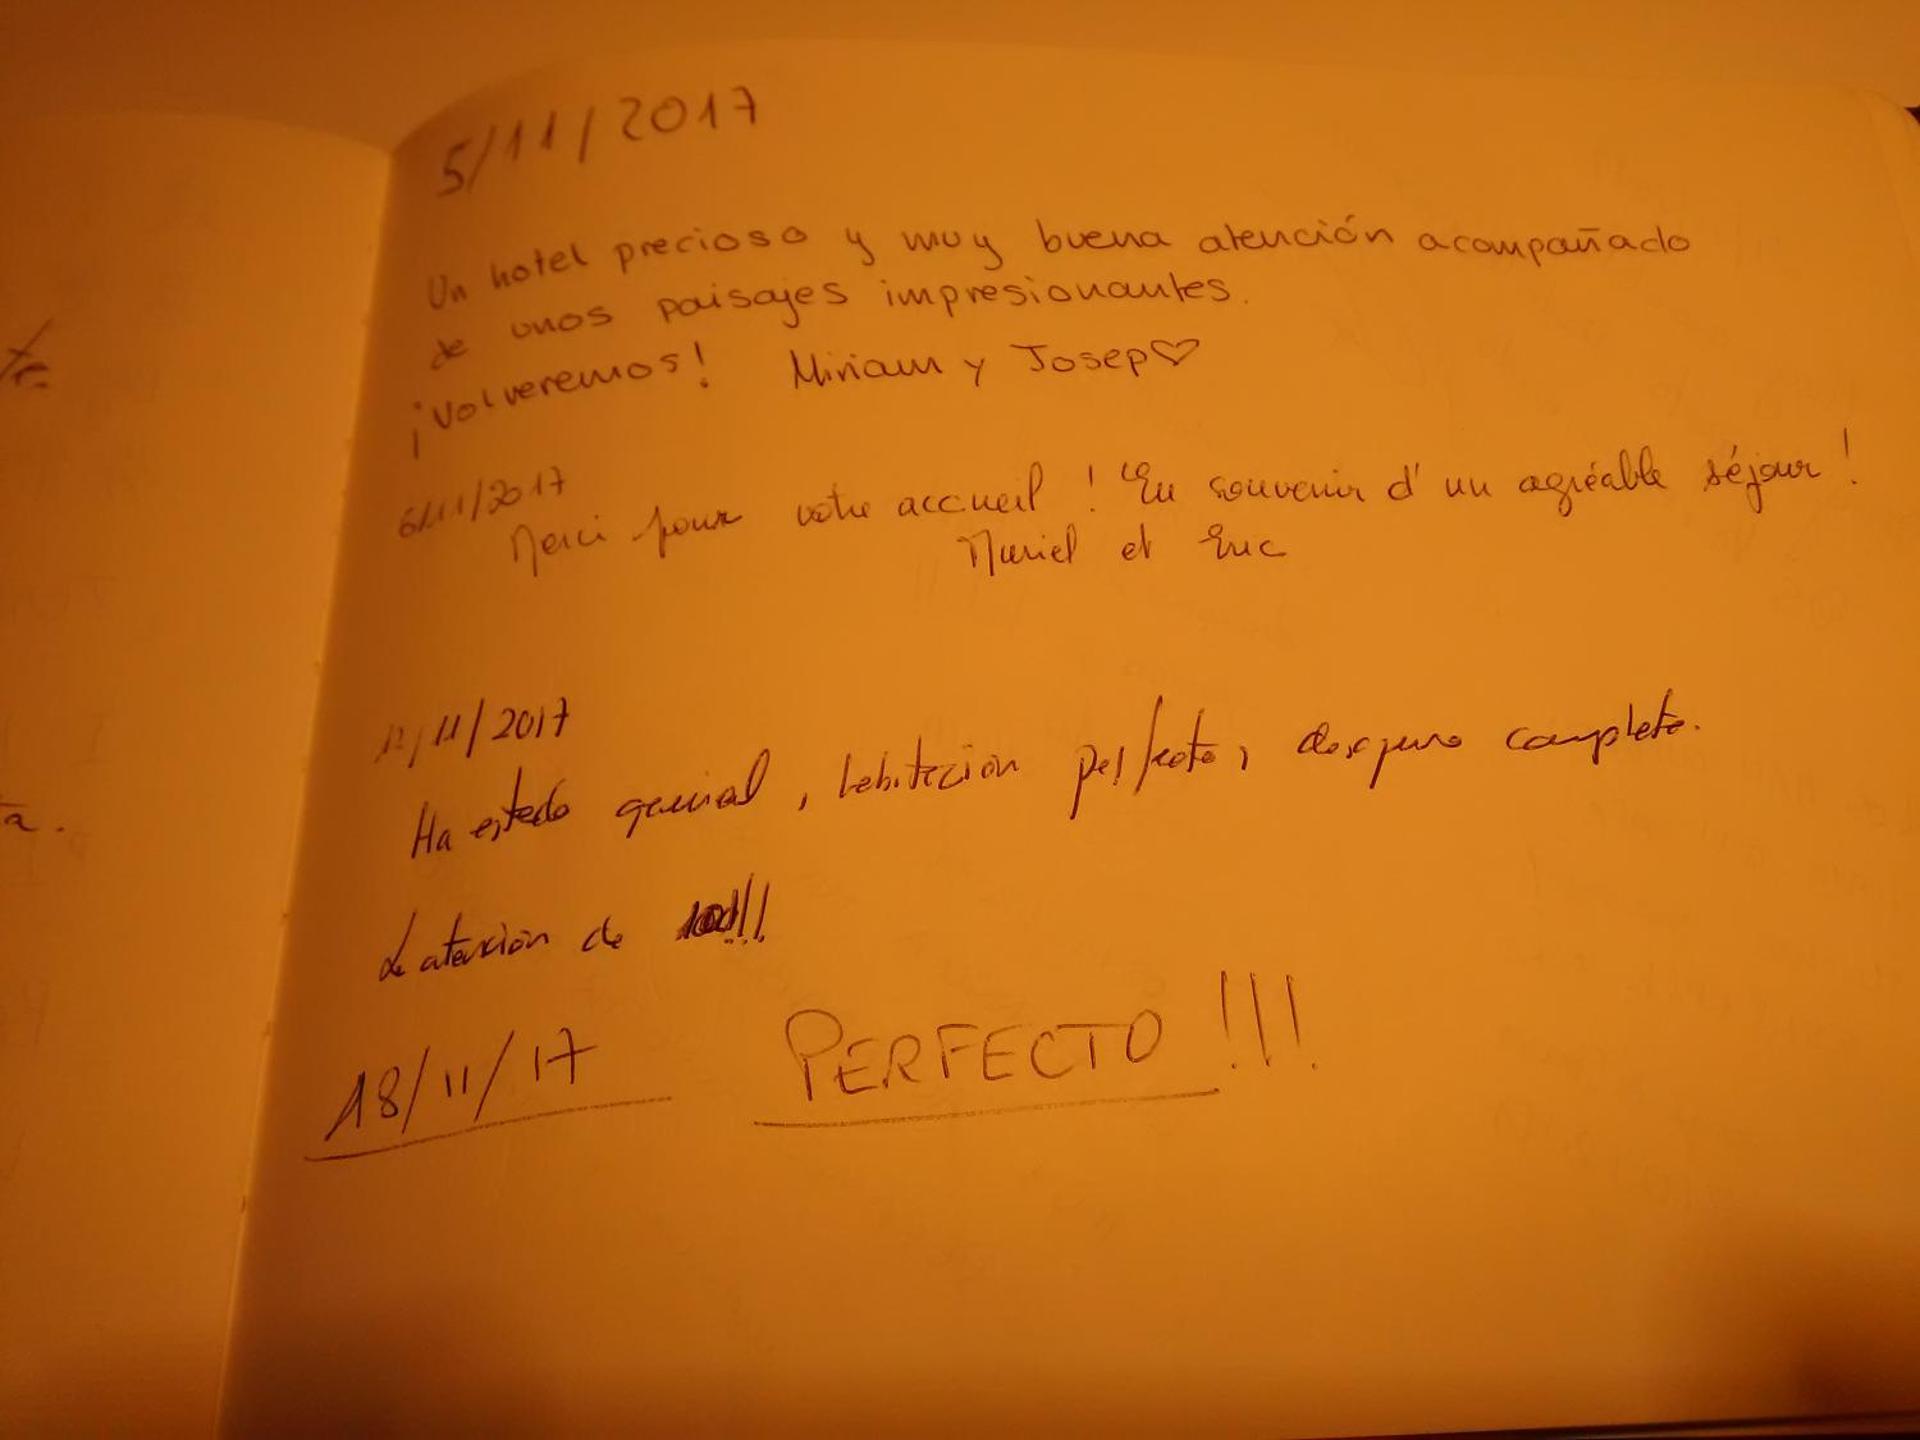 5/11/2017
Un hotel precioso y muy buena atención acompañado
de unos paisajes impresionantes.
¡Volveremos! Miriam y Josep♡
6/11/2017
Merci pour votre accueil ! En souvenir d'un agréable séjour !
Muriel et Eric
11/2017
Ha estado genial, habitación perfecta, desayuno completo.
La atención de 100!!!
18/11/17 PERFECTO!!!